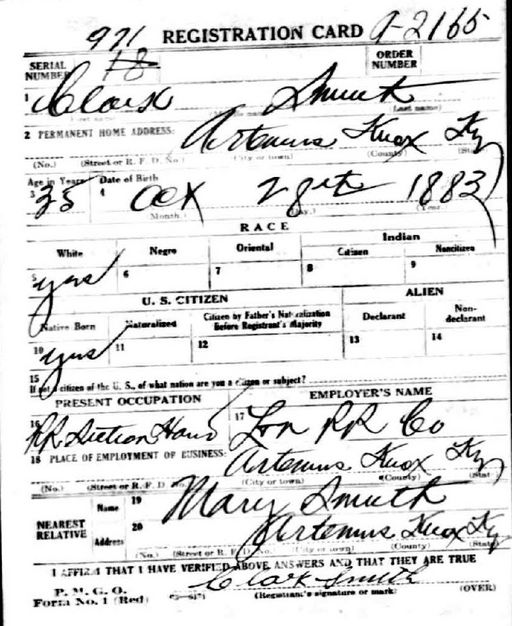 971 REGISTRATION CARD A-2165
SERIAL NUMBER 18 ORDER NUMBER
1 Clark Smith
(Last name)
2 PERMANENT HOME ADDRESS: Artemus Knox Ky
(No.) (Street or R. F. D. No.) (City or town) (County) (State)
Age in Years Date of Birth
3 35 4 Oct 28th 1883
(Month.) (Day.) (Year.)
RACE
White Negro Oriental Indian
Citizen Noncitizen
5 yes 6 7 8 9
U. S. CITIZEN ALIEN
Native Born Naturalized Citizen by Father's Naturalization Before Registrant's Majority Declarant Non-declarant
10 yes 11 12 13 14
15 If not a citizen of the U. S., of what nation are you a citizen or subject?
PRESENT OCCUPATION EMPLOYER'S NAME
16 RR Section Hand 17 L & N RR Co
18 PLACE OF EMPLOYMENT OR BUSINESS: Artemus Knox Ky
(No.) (Street or R. F. D. No.) (City or town) (County) (State)
NEAREST RELATIVE Name 19 Mary Smith
Address 20 Artemus Knox Ky
(No.) (Street or R. F. D. No.) (City or town) (County) (State)
I AFFIRM THAT I HAVE VERIFIED ABOVE ANSWERS AND THAT THEY ARE TRUE
Clark Smith
P. M. G. O.
Form No. 1 (Red) (Registrant's signature or mark) (OVER)